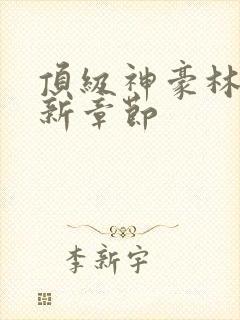 頂級神豪林
新章節
李新宇